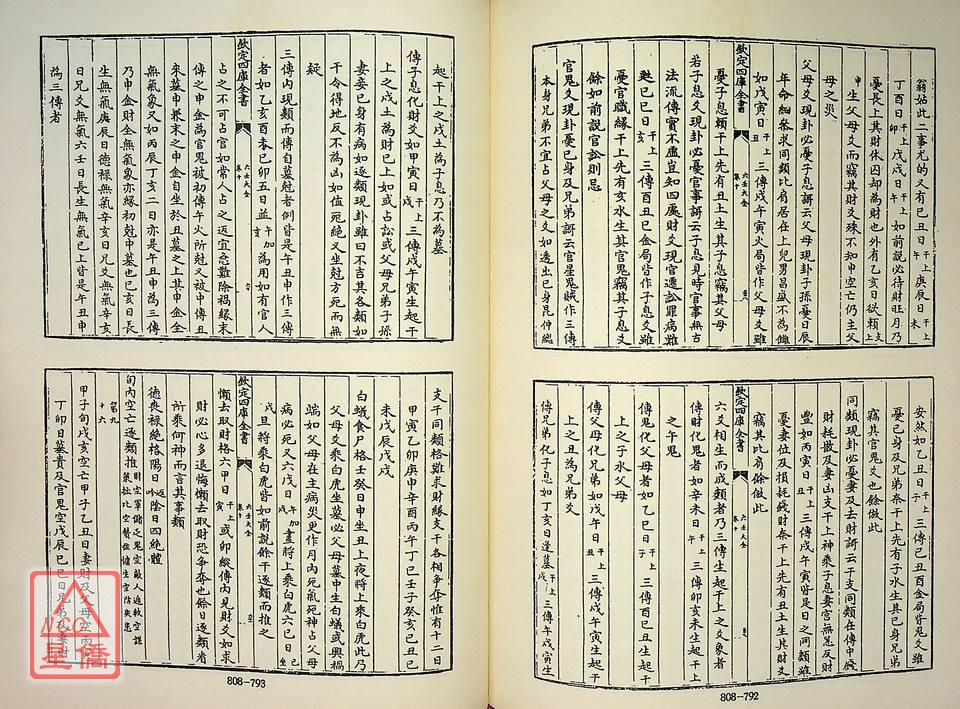 翁姑此二事尤的又有巳丑日干上午庚辰日干上未
丁酉日干上卯戊戌日干上午如前說必待財旺月乃
憂長上其財休囚却為財也外有乙亥日欲類上
申生父母爻而竊其財爻殊不知申空亡仍主父
母之災
父母爻現卦必憂子息謌云父母現卦子孫憂日辰
年命細叅求同類比肩居在上兒男昌盛不為愁
如戊寅日干上丑三傳戊午寅火局皆作父母爻雖
欽定四庫全書
六壬大全
卷十
憂子息頼干上先有丑土生其子息竊其父母
若子息爻現卦必憂官事謌云子息見時官事無占
法流傳實不虛豈知四處財爻現官遷訟罪病難
甦巳巳日干上亥三傳酉丑巳金局皆作子息爻雖
憂官職緣干上先有亥水生其官鬼竊其子息爻
餘如前說官訟則忌
官鬼爻現卦憂巳身及兄弟謌云官星鬼賊作三傳
本身兄弟不宜占父母之爻如透出巳身昆仲總
安然如乙丑日干上子三傳巳丑酉金局官鬼爻雖
憂巳身及兄弟奈干上先有子水生其巳身兄弟
竊其官鬼爻也餘倣此
同類現卦必憂妻及去財謌云干支同類在傳中錢
財耗散及妻凶支干上神乘子息妻宮無恙反財
豐如丙寅日干上丑三傳戌午寅皆是日之同類雖
憂妻位及損耗錢財奈干上先有丑土生其財爻
竊其比肩餘倣此
欽定四庫全書
六壬大全
卷十
六爻相生而成類者乃三傳生起干上之爻象者
傳財化鬼者如辛未日干上午三傳卯亥未生起干上
之午鬼
傳鬼化父母者如乙巳日干上子三傳酉巳丑生起干
上之子水父母
傳父母化兄弟如戊午日干上丑三傳戊午寅生起干
上之丑為兄弟爻
傳兄弟化子息如丁亥日逢墓干上戌三傳午戌寅生
808-792
起干上之戌土為子息乃不為墓
傳子息化財爻如甲寅日干上戌三傳戊午寅生起干
上之戌土為財巳上如或占訟或父母兄弟子孫
妻妾巳身有病如逐類現卦雖曰不吉其各類如
干令得地反不為凶如值死絶又坐尅方死而無
疑
三傳內現類而傳自墓尅者例皆是午丑申作三傳
者如乙亥酉夲巳卯五日並午加亥為用如有官人
欽定四庫全書
六壬大全
卷十
占之不可占官如常人占之返宜忌難除禍緣末
傳之申金為官鬼被初傳午火所尅又被中傳丑
來墓申兼末之申金自坐於丑墓之上其申金全
無氣象又如丙辰丁亥二日亦是午丑申為三傳
乃申金財全無氣象亦緣初尅中墓也巳亥日長
生無氣庚辰日德祿無氣辛亥日兄爻無氣辛亥
日兄爻無氣六壬日長生無氣巳上皆是午丑申
為三傳者
支干同類格難求財緣支干各相爭奪惟有十二日
甲寅乙卯庚申辛酉丙午丁巳壬子癸亥巳丑巳
未戊辰戊戌
白蟻食尸格壬癸日申坐丑上夜將上乘白虎此乃
父母爻乘白虎坐墓必父母墓中生白蟻或興禍
端如父母在主病災更作月內死氣死神占父母
病必死又六戊日午加戌晝將上乘白虎六巳日巳坐
戌旦將乘白虎皆如前說餘干逐類而推之
欽定四庫全書
六壬大全
卷十
懶去取財格六甲日干上寅或卯縱傳內見財爻如求
財必心多退悔懶去取財恐爭奪也餘日逐類看
所乘何神而言其事類
德喪祿絶格陽日返吟陰日四絶體
旬內空亡逐類推
第九
十六
甲子旬戌亥空亡甲子乙丑日妻財及父母空丙
丁卯日墓貴及官鬼空戊辰巳巳日兄弟及妻財
808-793
NCC
星僑